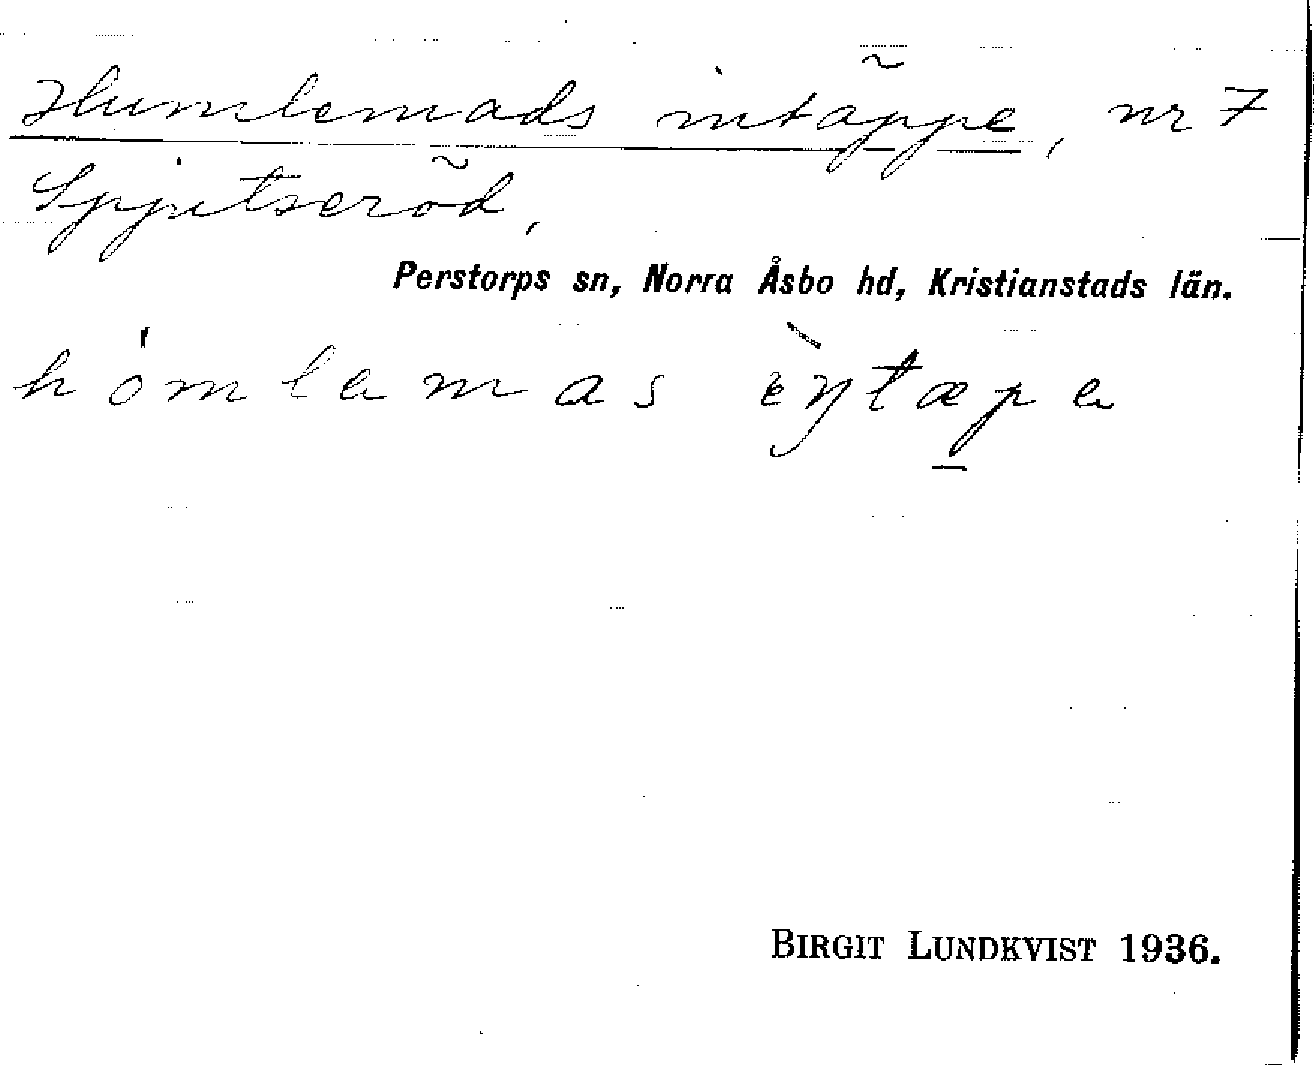 Humlemads intäppe, nr 7
Spjutseröd,
Perstorps sn, Norra Åsbo hd, Kristianstads län.
hómlamas
BIRGIT LUNDKVIST 1936.